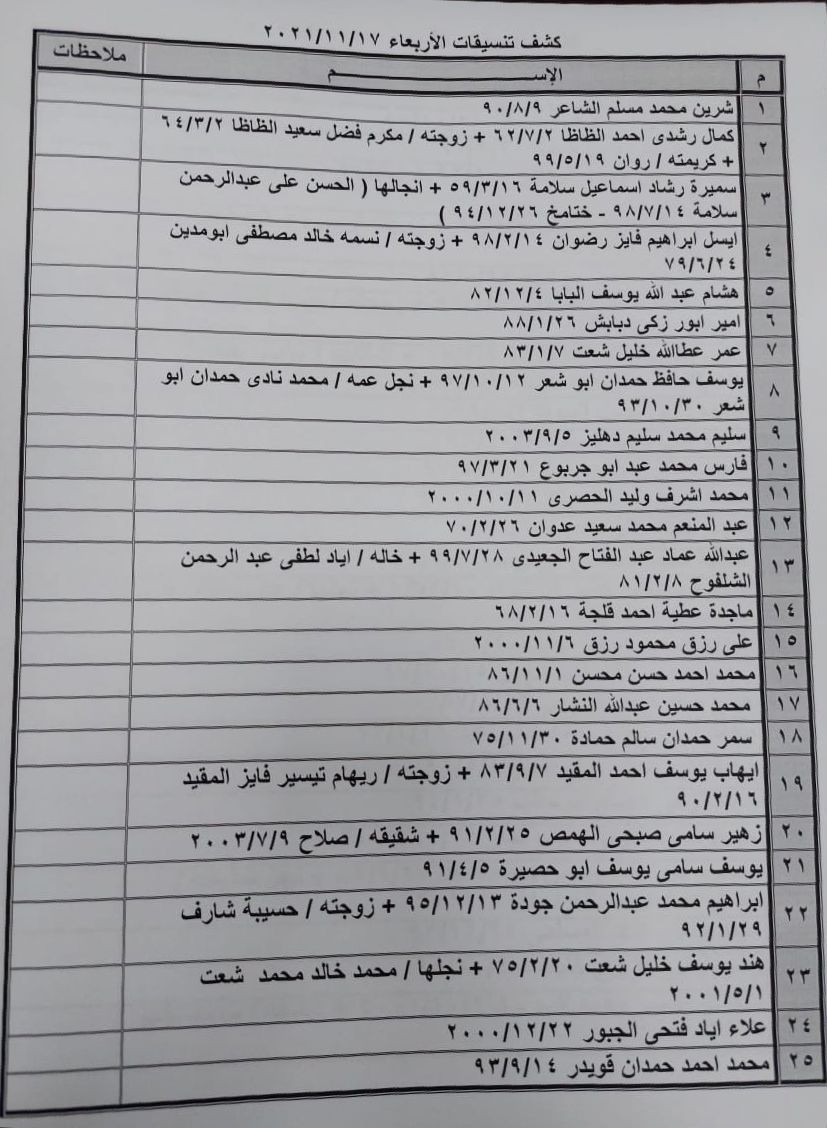 كشف تنسيقات الأربعاء ٢٠٢١/١١/١٧
م الإســـــــــــم ملاحظات
١ شرين محمد مسلم الشاعر ٩٠/٨/٩
٢ كمال رشدى احمد الظاظا ٦٢/٧/٢ + زوجته / مكرم فضل سعيد الظاظا ٦٤/٣/٢
+ كريمته / روان ٩٩/٥/١٩
٣ سميرة رشاد اسماعيل سلامة ٥٩/٣/١٦ + انجالها ( الحسن على عبدالرحمن
سلامة ٩٨/٧/١٤ - ختامخ ٩٤/١٢/٢٦ )
٤ ايسل ابراهيم فايز رضوان ٩٨/٢/١٤ + زوجته / نسمه خالد مصطفى ابومدين
٧٩/٦/٢٤
٥ هشام عبد الله يوسف البابا ٨٢/١٢/٤
٦ امير ابور زكى دبابش ٨٨/١/٢٦
٧ عمر عطاالله خليل شعت ٨٣/١/٧
٨ يوسف حافظ حمدان ابو شعر ٩٧/١٠/١٢ + نجل عمه / محمد نادى حمدان ابو
شعر ٩٣/١٠/٣٠
٩ سليم محمد سليم دهليز ٢٠٠٣/٩/٥
١٠ فارس محمد عبد ابو جربوع ٩٧/٣/٢١
١١ محمد اشرف وليد الحصرى ٢٠٠٠/١٠/١١
١٢ عبد المنعم محمد سعيد عدوان ٧٠/٢/٢٦
١٣ عبدالله عماد عبد الفتاح الجعيدى ٩٩/٧/٢٨ + خاله / اياد لطفى عبد الرحمن
الشلفوح ٨١/٢/٨
١٤ ماجدة عطية احمد قلجة ٦٨/٢/١٦
١٥ على رزق محمود رزق ٢٠٠٠/١١/٦
١٦ محمد احمد حسن محسن ٨٦/١١/١
١٧ محمد حسين عبدالله النشار ٨٦/٦/٦
١٨ سمر حمدان سالم حمادة ٧٥/١١/٣٠
١٩ ايهاب يوسف احمد المقيد ٨٣/٩/٧ + زوجته / ريهام تيسير فايز المقيد
٩٠/٢/١٦
٢٠ زهير سامى صبحى الهمص ٩١/٢/٢٥ + شقيقه / صلاح ٢٠٠٣/٧/٩
٢١ يوسف سامى يوسف ابو حصيرة ٩١/٤/٥
٢٢ ابراهيم محمد عبدالرحمن جودة ٩٥/١٢/١٣ + زوجته / حسيبة شارف
٩٢/١/٢٩
٢٣ هند يوسف خليل شعت ٧٥/٢/٢٠ + نجلها / محمد خالد محمد شعت
٢٠٠١/٥/١
٢٤ علاء اياد فتحى الجبور ٢٠٠٠/١٢/٢٢
٢٥ محمد احمد حمدان قويدر ٩٣/٩/١٤